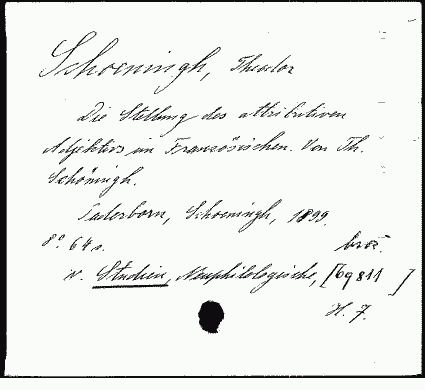 Schoeningh, Theodor
Die Stellung des attributiven
Adjektivs im Französischen. Von Th.
Schöningh.
Paderborn, Schoeningh, 1899.
8° 64 s. broš.
w. Studien, Neuphilologische, [bg 811]
H. 7.